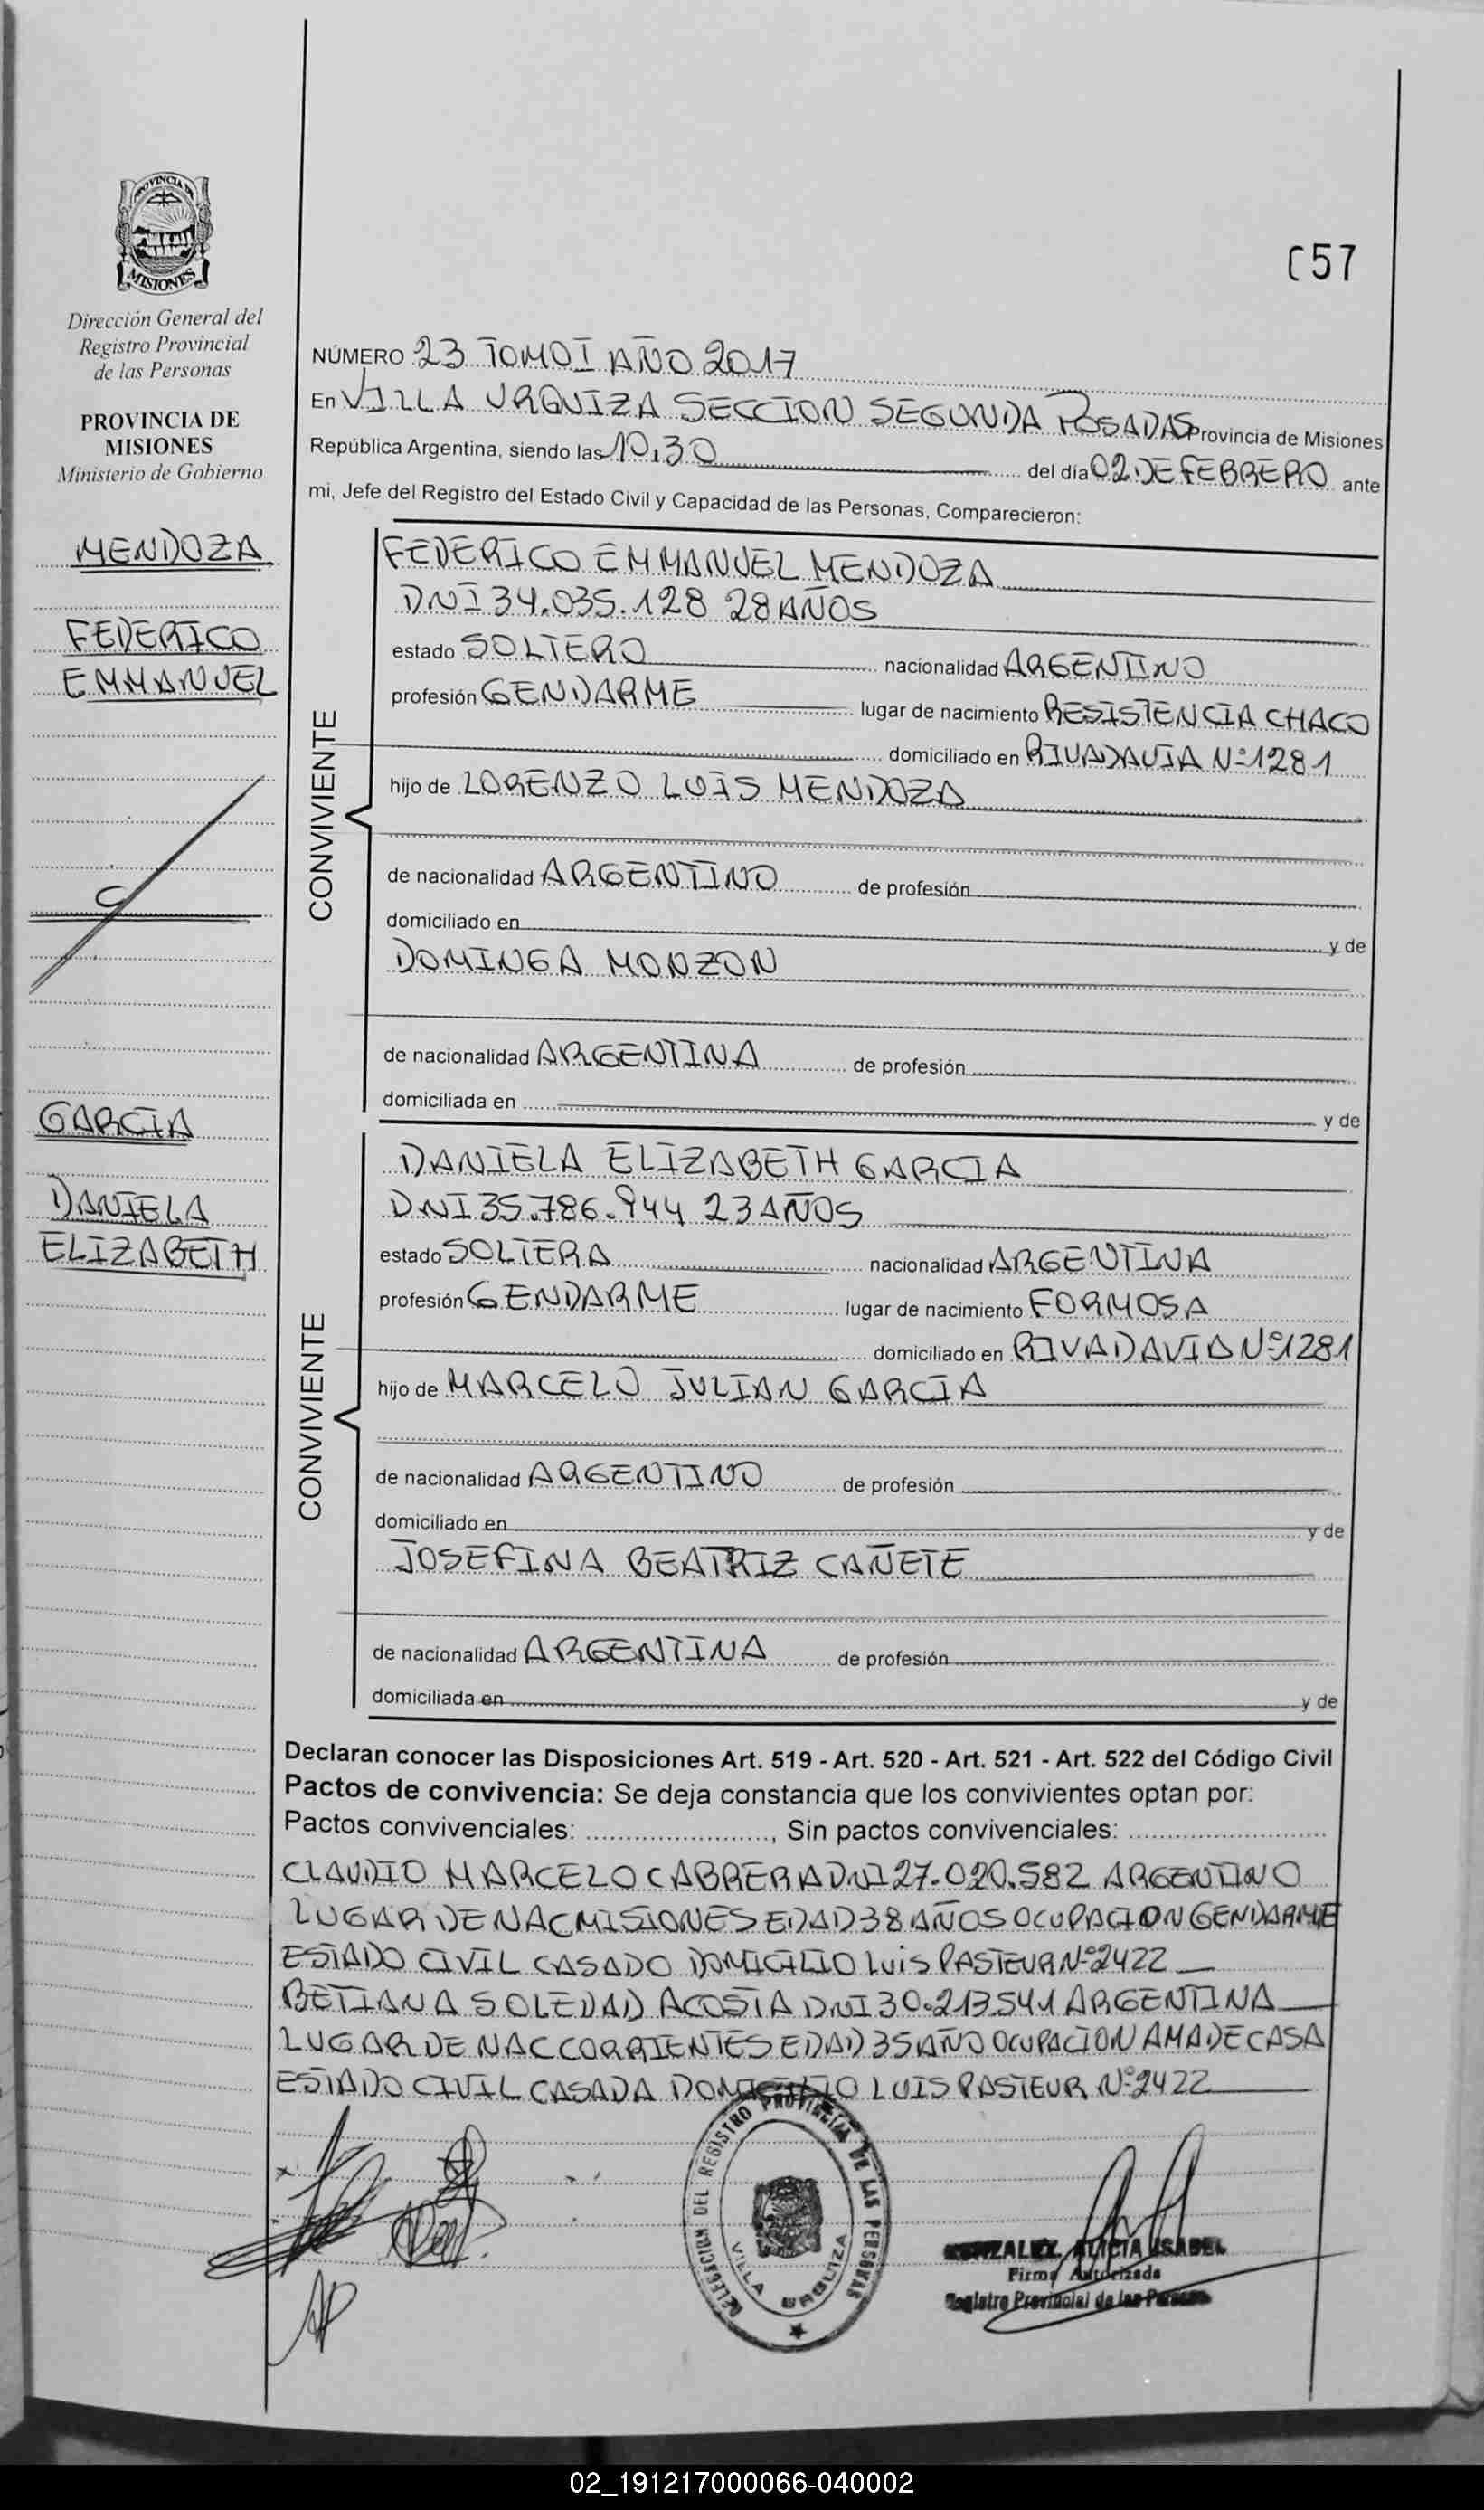 PROVINCIA DE
MISIONES
Dirección General del
Registro Provincial
de las Personas
PROVINCIA DE
MISIONES
Ministerio de Gobierno
MENDOZA
FEDERICO
EMMANUEL
GARCIA
DANIELA
ELIZABETH
C57
NÚMERO 23 TOMO I AÑO 2017
En VILLA URQUIZA SECCION SEGUNDA POSADAS Provincia de Misiones
República Argentina, siendo las 10,30 del día 02 DE FEBRERO ante
mi, Jefe del Registro del Estado Civil y Capacidad de las Personas, Comparecieron:
CONVIVIENTE
FEDERICO EMMANUEL MENDOZA
DNI 34.035.128 28 AÑOS
estado SOLTERO nacionalidad ARGENTINO
profesión GENDARME lugar de nacimiento RESISTENCIA CHACO
domiciliado en RIVADAVIA Nº 1281
hijo de LORENZO LUIS MENDOZA
de nacionalidad ARGENTINO de profesión
domiciliado en y de
DOMINGA MONZON
de nacionalidad ARGENTINA de profesión
domiciliada en y de
CONVIVIENTE
DANIELA ELIZABETH GARCIA
DNI 35.786.944 23 AÑOS
estado SOLTERA nacionalidad ARGENTINA
profesión GENDARME lugar de nacimiento FORMOSA
domiciliado en RIVADAVIA Nº 1281
hijo de MARCELO JULIAN GARCIA
de nacionalidad ARGENTINO de profesión
domiciliado en y de
JOSEFINA BEATRIZ CAÑETE
de nacionalidad ARGENTINA de profesión
domiciliada en y de
Declaran conocer las Disposiciones Art. 519 - Art. 520 - Art. 521 - Art. 522 del Código Civil
Pactos de convivencia: Se deja constancia que los convivientes optan por:
Pactos convivenciales: ........................, Sin pactos convivenciales: ..........................
CLAUDIO MARCELO CABRERA DNI 27.020.582 ARGENTINO
LUGAR DE NAC MISIONES EDAD 38 AÑOS OCUPACION GENDARME
ESTADO CIVIL CASADO DOMICILIO LUIS PASTEUR Nº 2422
BETIANA SOLEDAD ACOSTA DNI 30.213541 ARGENTINA
LUGAR DE NAC CORRIENTES EDAD 35 AÑO OCUPACION AMA DE CASA
ESTADO CIVIL CASADA DOMICILIO LUIS PASTEUR Nº 2422
DELEGACION DEL REGISTRO PROVINCIAL DE LAS PERSONAS
VILLA URQUIZA
GONZALEZ, ALICIA ISABEL
Firma Autorizada
Registro Provincial de las Personas
02_191217000066-040002